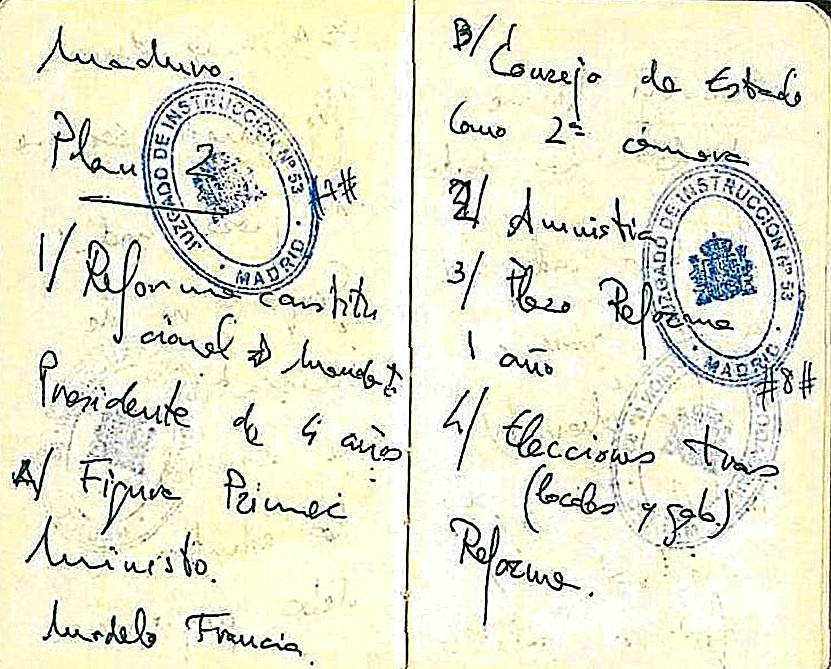 Maduro.
Plan 2
#7#
1/ Reforma constitu
cional → Mandato
Presidente de 4 años
A/ Figura Primer
Ministro.
Modelo Francia.
JUZGADO DE INSTRUCCION Nº 53
· MADRID ·
B/ Consejo de Estado
Como 2ª cámara
2/ Amnistia
3/ Plazo Reforma
1 año
#8#
4/ Elecciones tras
(locales y gob.)
Reforma.
JUZGADO DE INSTRUCCION Nº 53
· MADRID ·